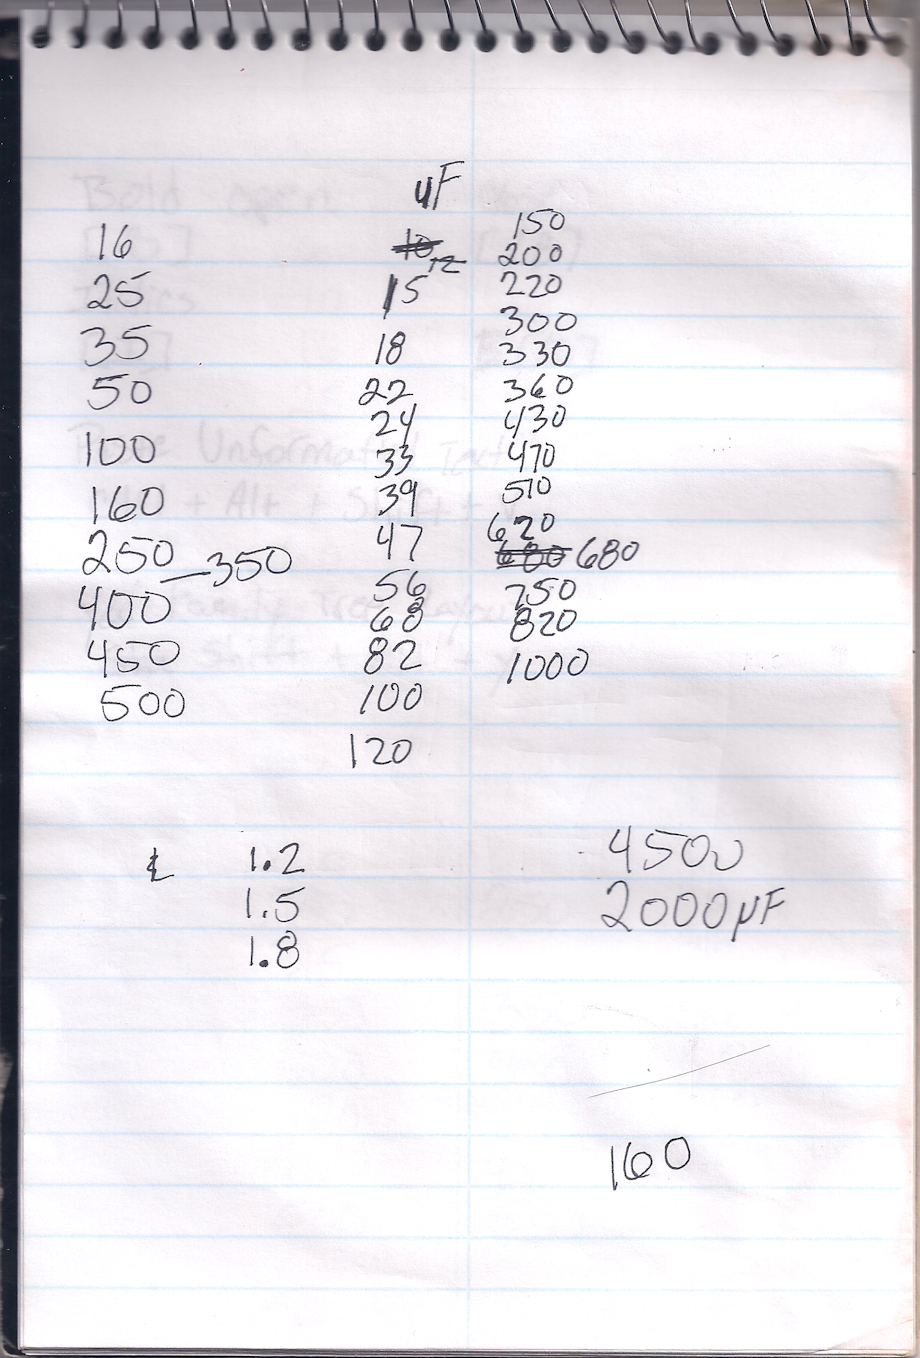 uF
16 10 12 150
200
25 15 220
300
35 18 330
50 22 360
24 430
100 33 470
160 39 510
47 620
250 350 680 680
400 56 750
68 820
450 82 1000
500 100
120
1.2 450v
1.5 2000µF
1.8
160